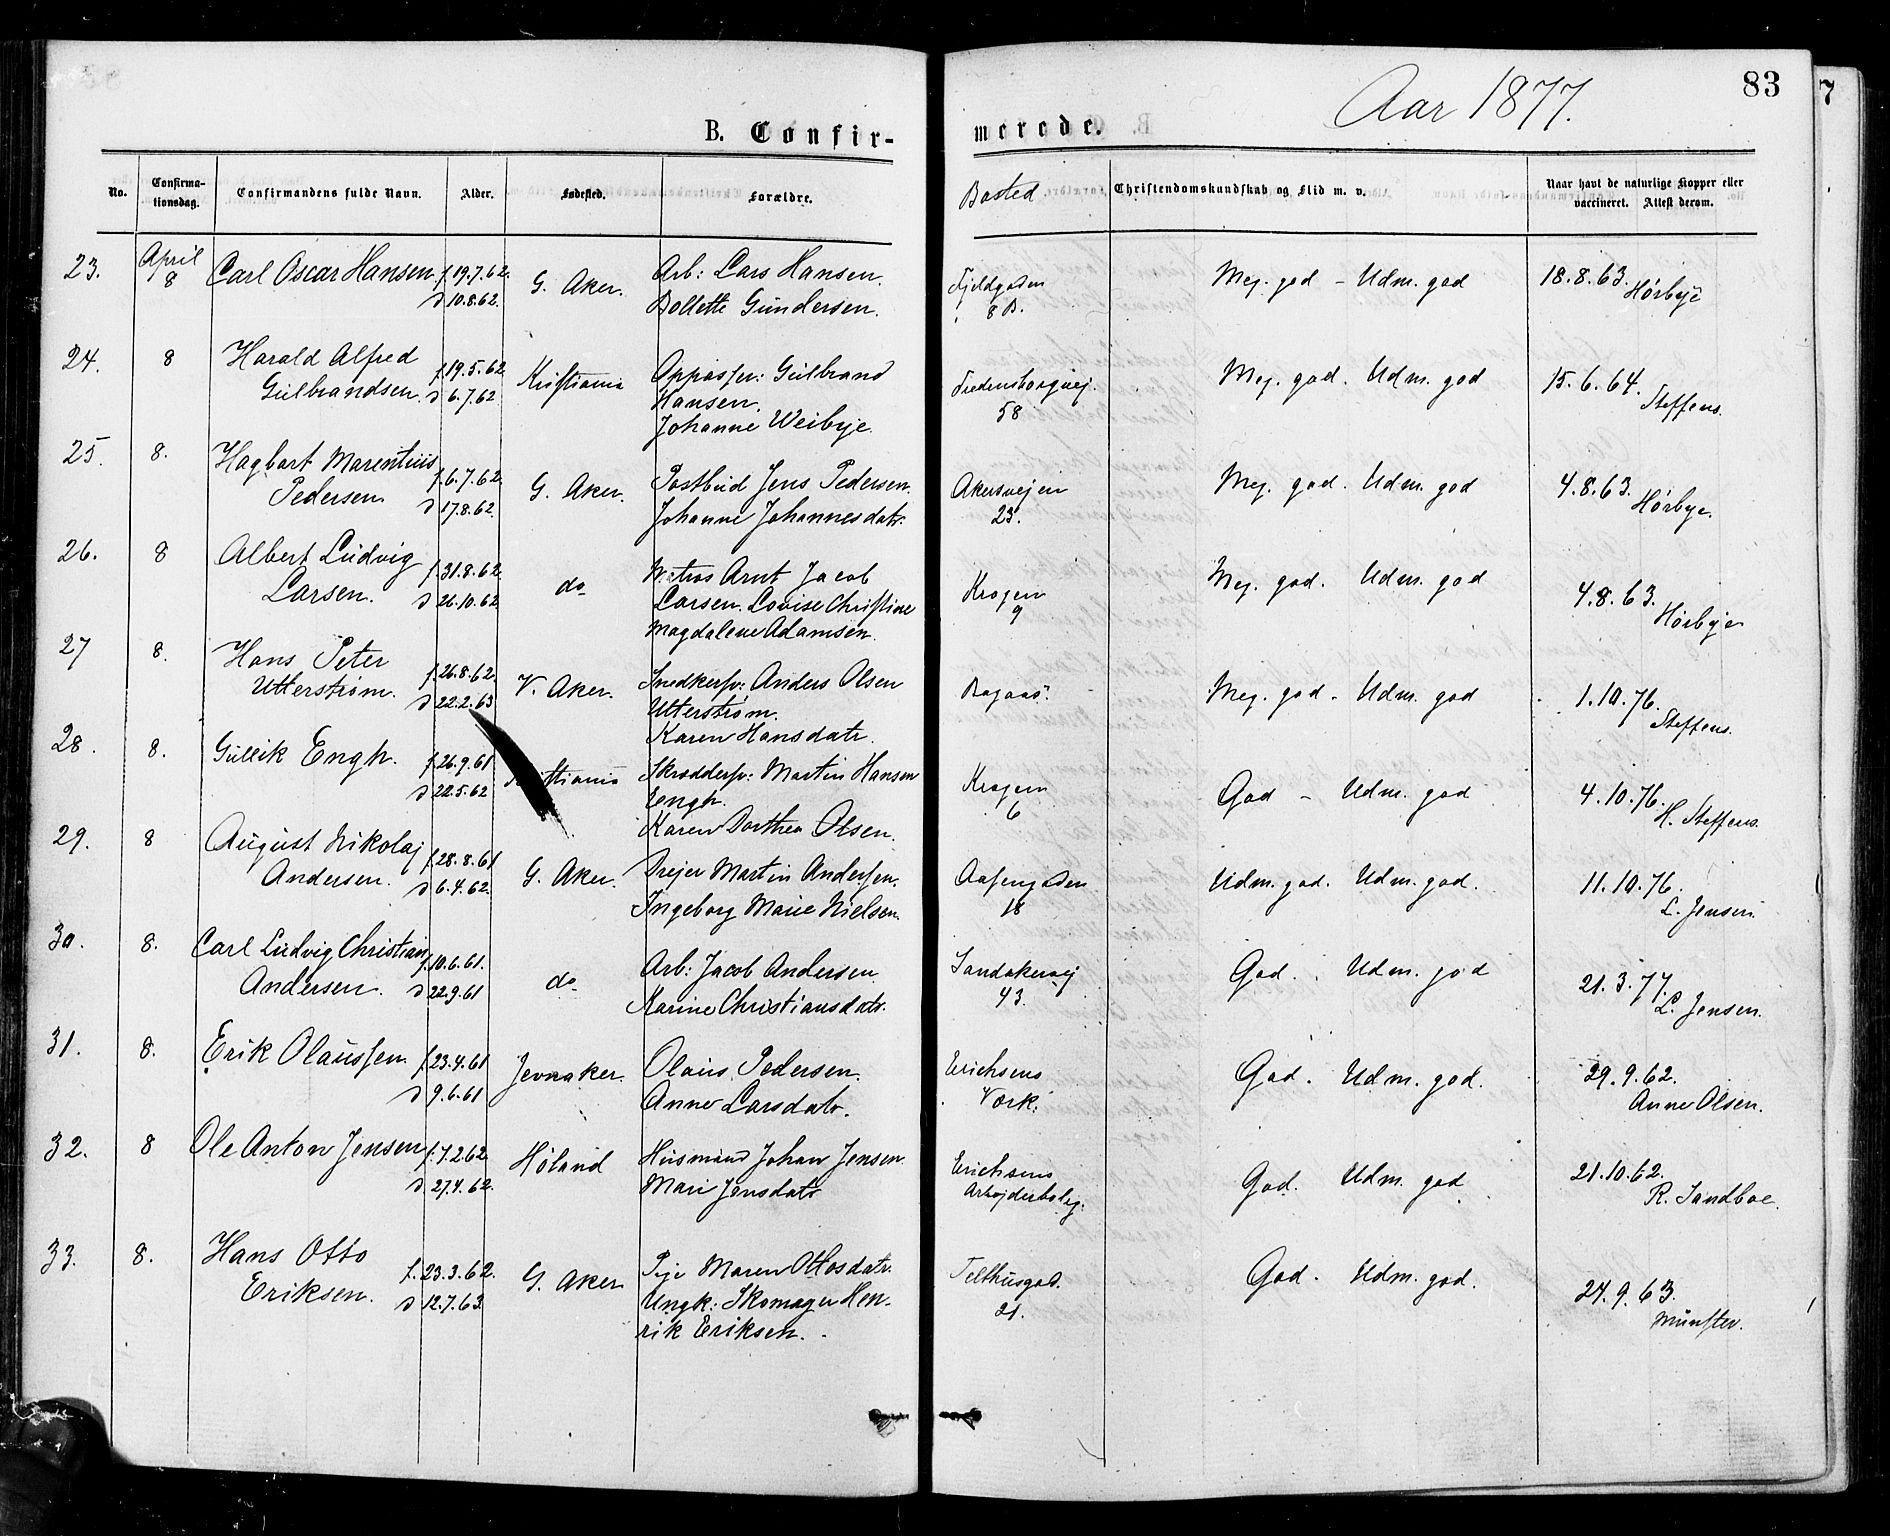 83
Aar 1877.
B. Confir-
merede.
No.
Confirma-
tionsdag.
Confirmandens fulde Navn.
Alder.
Fødested.
Forældre.
Bosted
Christendomskundskab og Flid m. v.
Naar havt de naturlige Kopper eller
vaccineret. Attest derom.
23. April 8 Carl Oscar Hansen f. 19.7.62. G. Aker. Arb: Lars Hansen. Fjeldgaden Meg. god - Udm. god 18.8.63. Hørbye
d 10.8.62. Bollette Gundersen. 8 B.
24. 8 Harald Alfred f. 19.5.62 Kristiania Oppasser: Gulbrand Fredensborgvej. Meg. god. Udm. god 15.6.64. Steffens.
Gulbrandsen d 6.7.62 Hansen. 58
Johanne Weibye.
25. 8. Hagbart Marentius f. 6.7.62. G. Aker. Postbud Jens Pedersen. Akersvejen Meg. god. Udm. god 4.8.63. Hørbye.
Pedersen d 17.8.62. Johanne Johannesdatr. 23.
26. 8 Albert Ludvig f. 31.8.62. do Matros Arnt Jacob Krogen Meg. god. Udm. god 4.8.63. Hørbye
Larsen. d 26.10.62 Larsen. Lovise Christine 9
Magdalene Adamsen.
27 8. Hans Peter f. 26.8.62. V. Aker. Snedkersv: Anders Olsen Meg. god - Udm. god 1.10.76. Steffens.
Utterstrøm. d 22.2.63 Utterstrøm.
Karen Hansdatr.
28. 8. Gullik Engh. f. 26.9.61 Kristiania Skrædersv: Martin Hansen Krogen God - Udm. god 4.10.76. H. Steffens.
d 22.5.62 Engh. 6
Karen Dorthea Olsen.
29. 8 August Nikolaj f. 28.8.61 G. Aker. Drejer Martin Andersen. Aasengaden Udm. god. Udm. god. 11.10.76. L. Jensen.
Andersen. d 6.4.62. Ingeborg Marie Nielsen. 18
30. 8. Carl Ludvig Christian f. 10.6.61. do Arb: Jacob Andersen Sandakervej God. Udm. god 21.3.77. L. Jensen.
Andersen. d 22.9.61 Karine Christiansdatr. 43.
31. 8. Erik Olaussen f. 23.4.61 Jevnaker. Olaus Pedersen. Erichsens God. Udm. god. 29.9.62.
d 9.6.61 Anne Larsdatr. Værk. Anne Olsen.
32. 8 Ole Anton Jensen f. 7.2.62. Høland Husmand Johan Jensen Erichsens God. Udm. god 21.10.62.
d. 27.4.62. Mari Jensdatr Arbejderbolig. R. Sandboe.
33. 8. Hans Otto f. 23.3.62. G. Aker Pige Maren Ottosdatr. Telthusgad. God. Udm. god. 24.9.63.
Eriksen. d 12.7.63. Ungk: Skomager Hen- 21. Münster.
rik Eriksen.